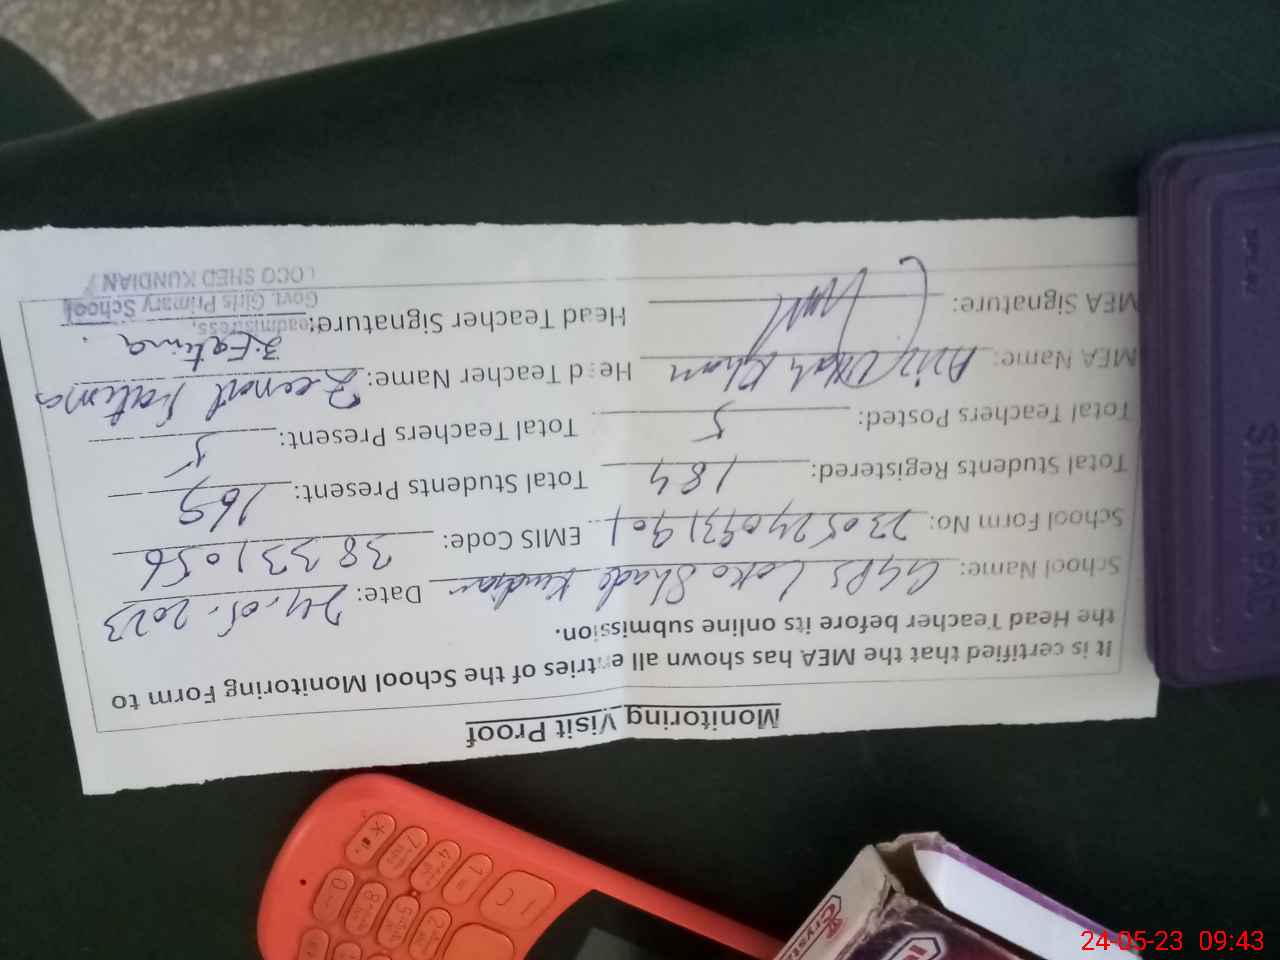 Monitoring Visit Proof
It is certified that the MEA has shown all entries of the School Monitoring Form to
the Head Teacher before its online submission.
School Name: GGPS Loko Shade Kundian Date: 24.05.2023
School Form No: EMIS Code: 38331056
Total Students Registered: 184 Total Students Present: 169
Total Teachers Posted: 5 Total Teachers Present: 5
MEA Name: Khan Head Teacher Name: Zeenat Fatima
MEA Signature: Head Teacher Signature: Z.Fatima.
Headmistress,
Govt. Girls Primary School
LOCO SHED KUNDIAN
STAMP PAD
Crysta
24-05-23 09:43